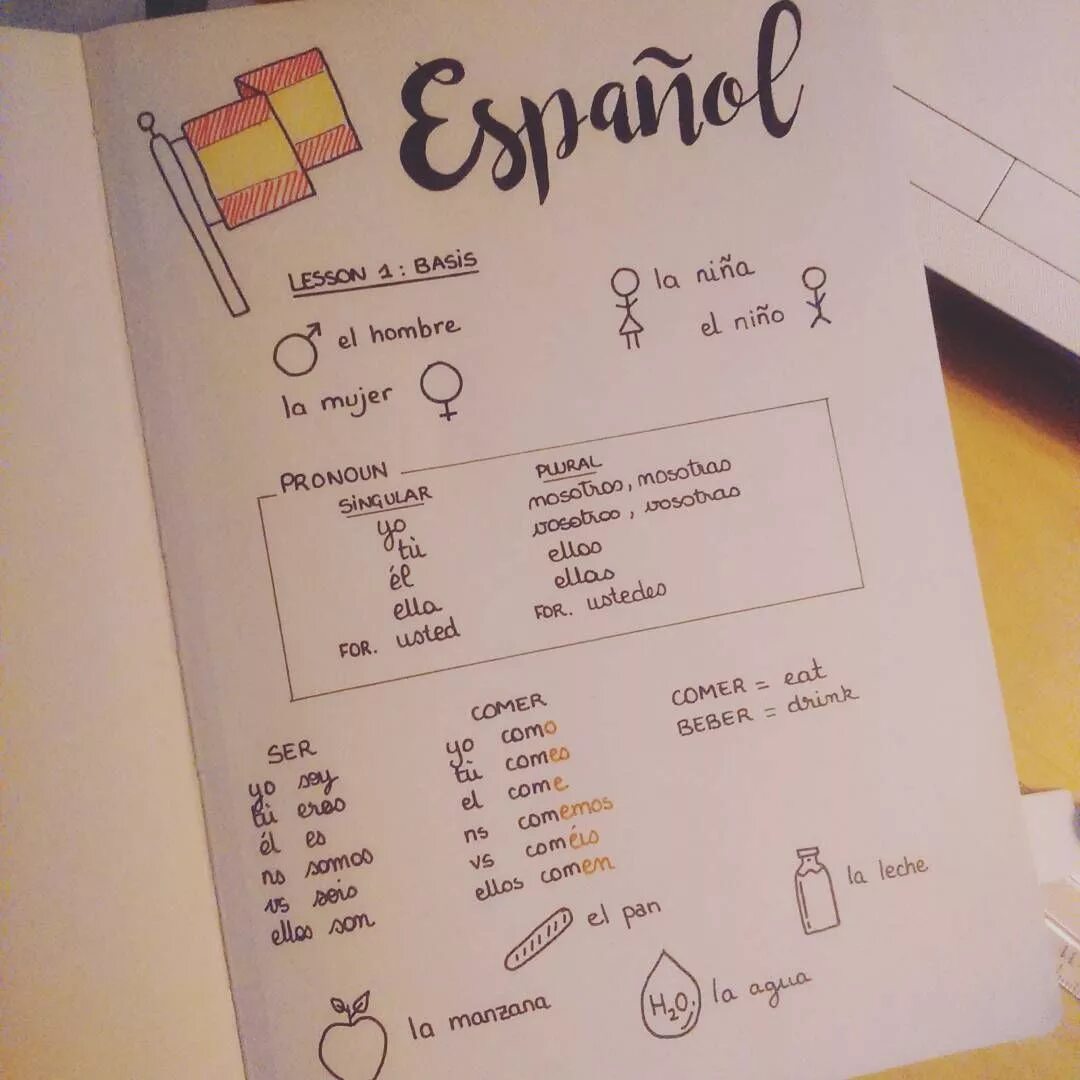 Español
LESSON 1: BASIS
el hombre
la mujer
la niña
el niño
PRONOUN
SINGULAR
yo
tù
él
ella
FOR. usted
PLURAL
nosotros, nosotras
vosotros, vosotras
ellos
ellas
FOR. ustedes
SER
yo soy
tù eres
él es
ns somos
vs seis
ellos son
COMER
yo como
tù comes
el come
ns comemos
vs coméis
ellos comen
COMER = eat
BEBER = drink
el pan
la leche
la manzana
H₂O
la agua